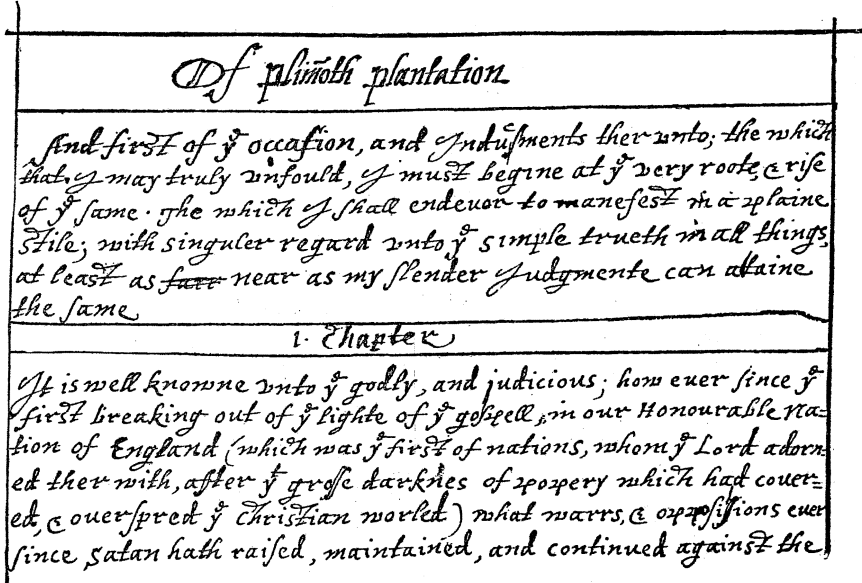 Of plim̃oth plantation
And first of yͤ occasion, and Indusments ther unto; the which
that I may truly unfould, I must begine at yͤ very roote, & rise
of yͤ same. The which I shall endevor to manefest in a plaine
stile; with singuler regard unto yͤ simple trueth in all things,
at least as farr near as my slender Judgmente can attaine
the same
1. Chapter
It is well knowne vnto yͤ godly, and judicious; how euer since yͤ
first breaking out of yͤ lighte of yͤ gospell, in our Honourable Na=
tion of England (which was yͤ first of nations, whom yͤ Lord adorn=
ed ther with, after yͭ grosse darknes of popery which had couer=
ed, & ouerspred yͤ Christian worled) what warrs, & oppossissions euer
since, Satan hath raised, maintained, and continued against the